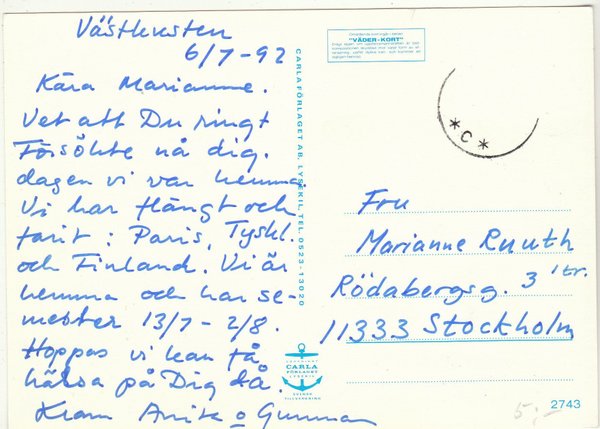 Västkusten
6/7-92
Kära Marianne.
Vet att Du ringt
Försökte nå dig.
dagen vi var hemma.
Vi har flängt och
farit: Paris, Tyskl.
och Finland. Vi är
hemma och har se-
mester 13/7 - 2/8.
Hoppas vi kan få
hälsa på Dig då.
Kram Anita o Gunnar
CARLAFÖRLAGET AB, LYSEKIL, TEL. 0523-13020
COPYRIGHT
CARLA
FÖRLAGET
LYSEKIL
SVENSK
TILLVERKNING
"VÄDER-KORT"
*C*
Fru
Marianne Ruuth
Rödabergsg. 3 1 tr.
11333 Stockholm
5:-
2743